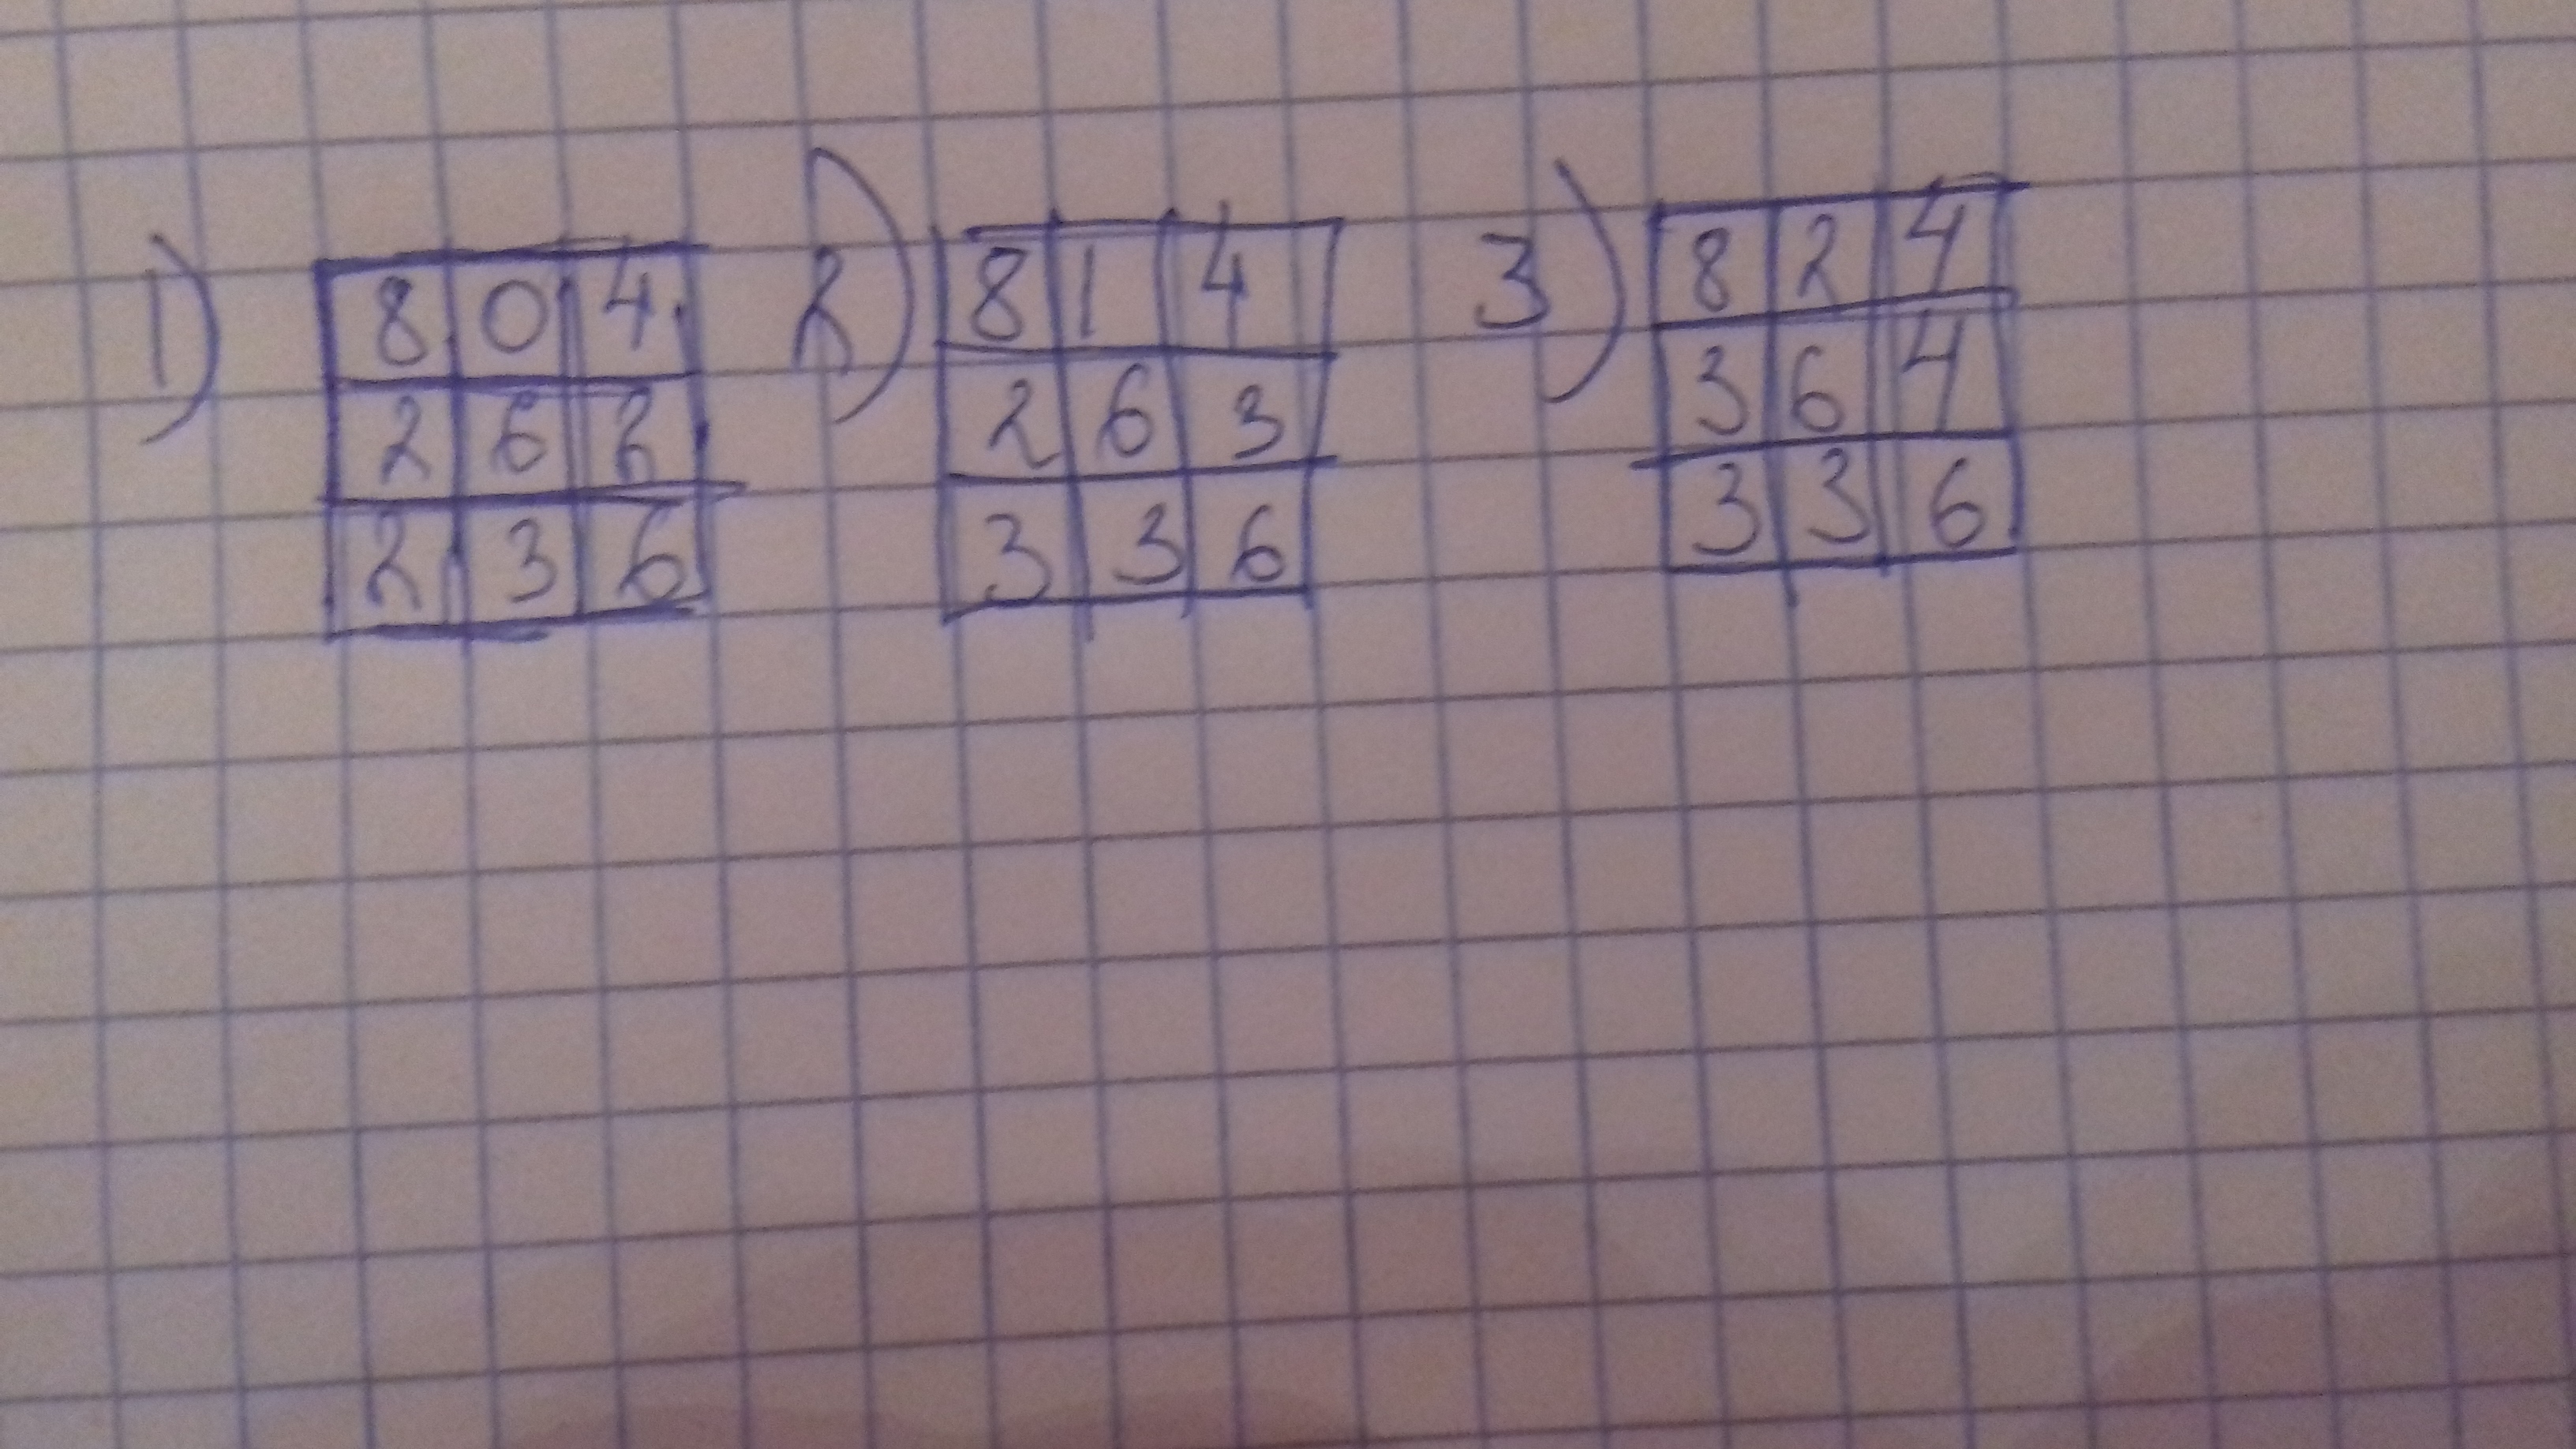 1) 8 0 4 2) 8 1 4 3) 8 2 4
2 6 2 2 6 3 3 6 4
2 3 6 3 3 6 3 3 6